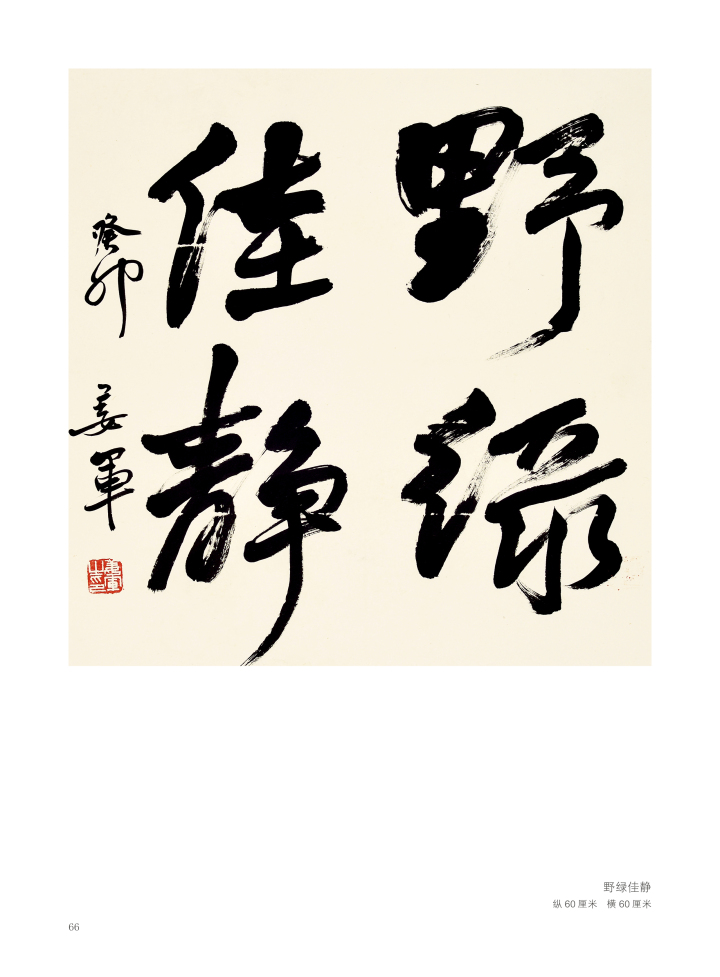 野綠
佳靜
癸卯 姜軍
姜軍之印
野绿佳静
纵 60 厘米 横 60 厘米
66